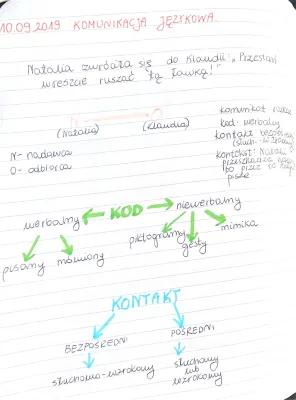 10.09.2019 KOMUNIKACJA JĘZYKOWA.
Natalia zwróciła się do Klaudii: „Przestań
wreszcie ruszać tą ławką!"
(Natalia) (Klaudia)
N- nadawca
O- odbiorca
komunikat
kod: werbalny
kontakt
(słuch.-wzrokowy)
kontekst: Natalii
przeszkadza
bo przez to
pisze
KOD
werbalny niewerbalny
pisany mówiony piktogramy gesty mimika
KONTAKT
BEZPOŚREDNI POŚREDNI
słuchowo-wzrokowy słuchowy
lub
wzrokowy